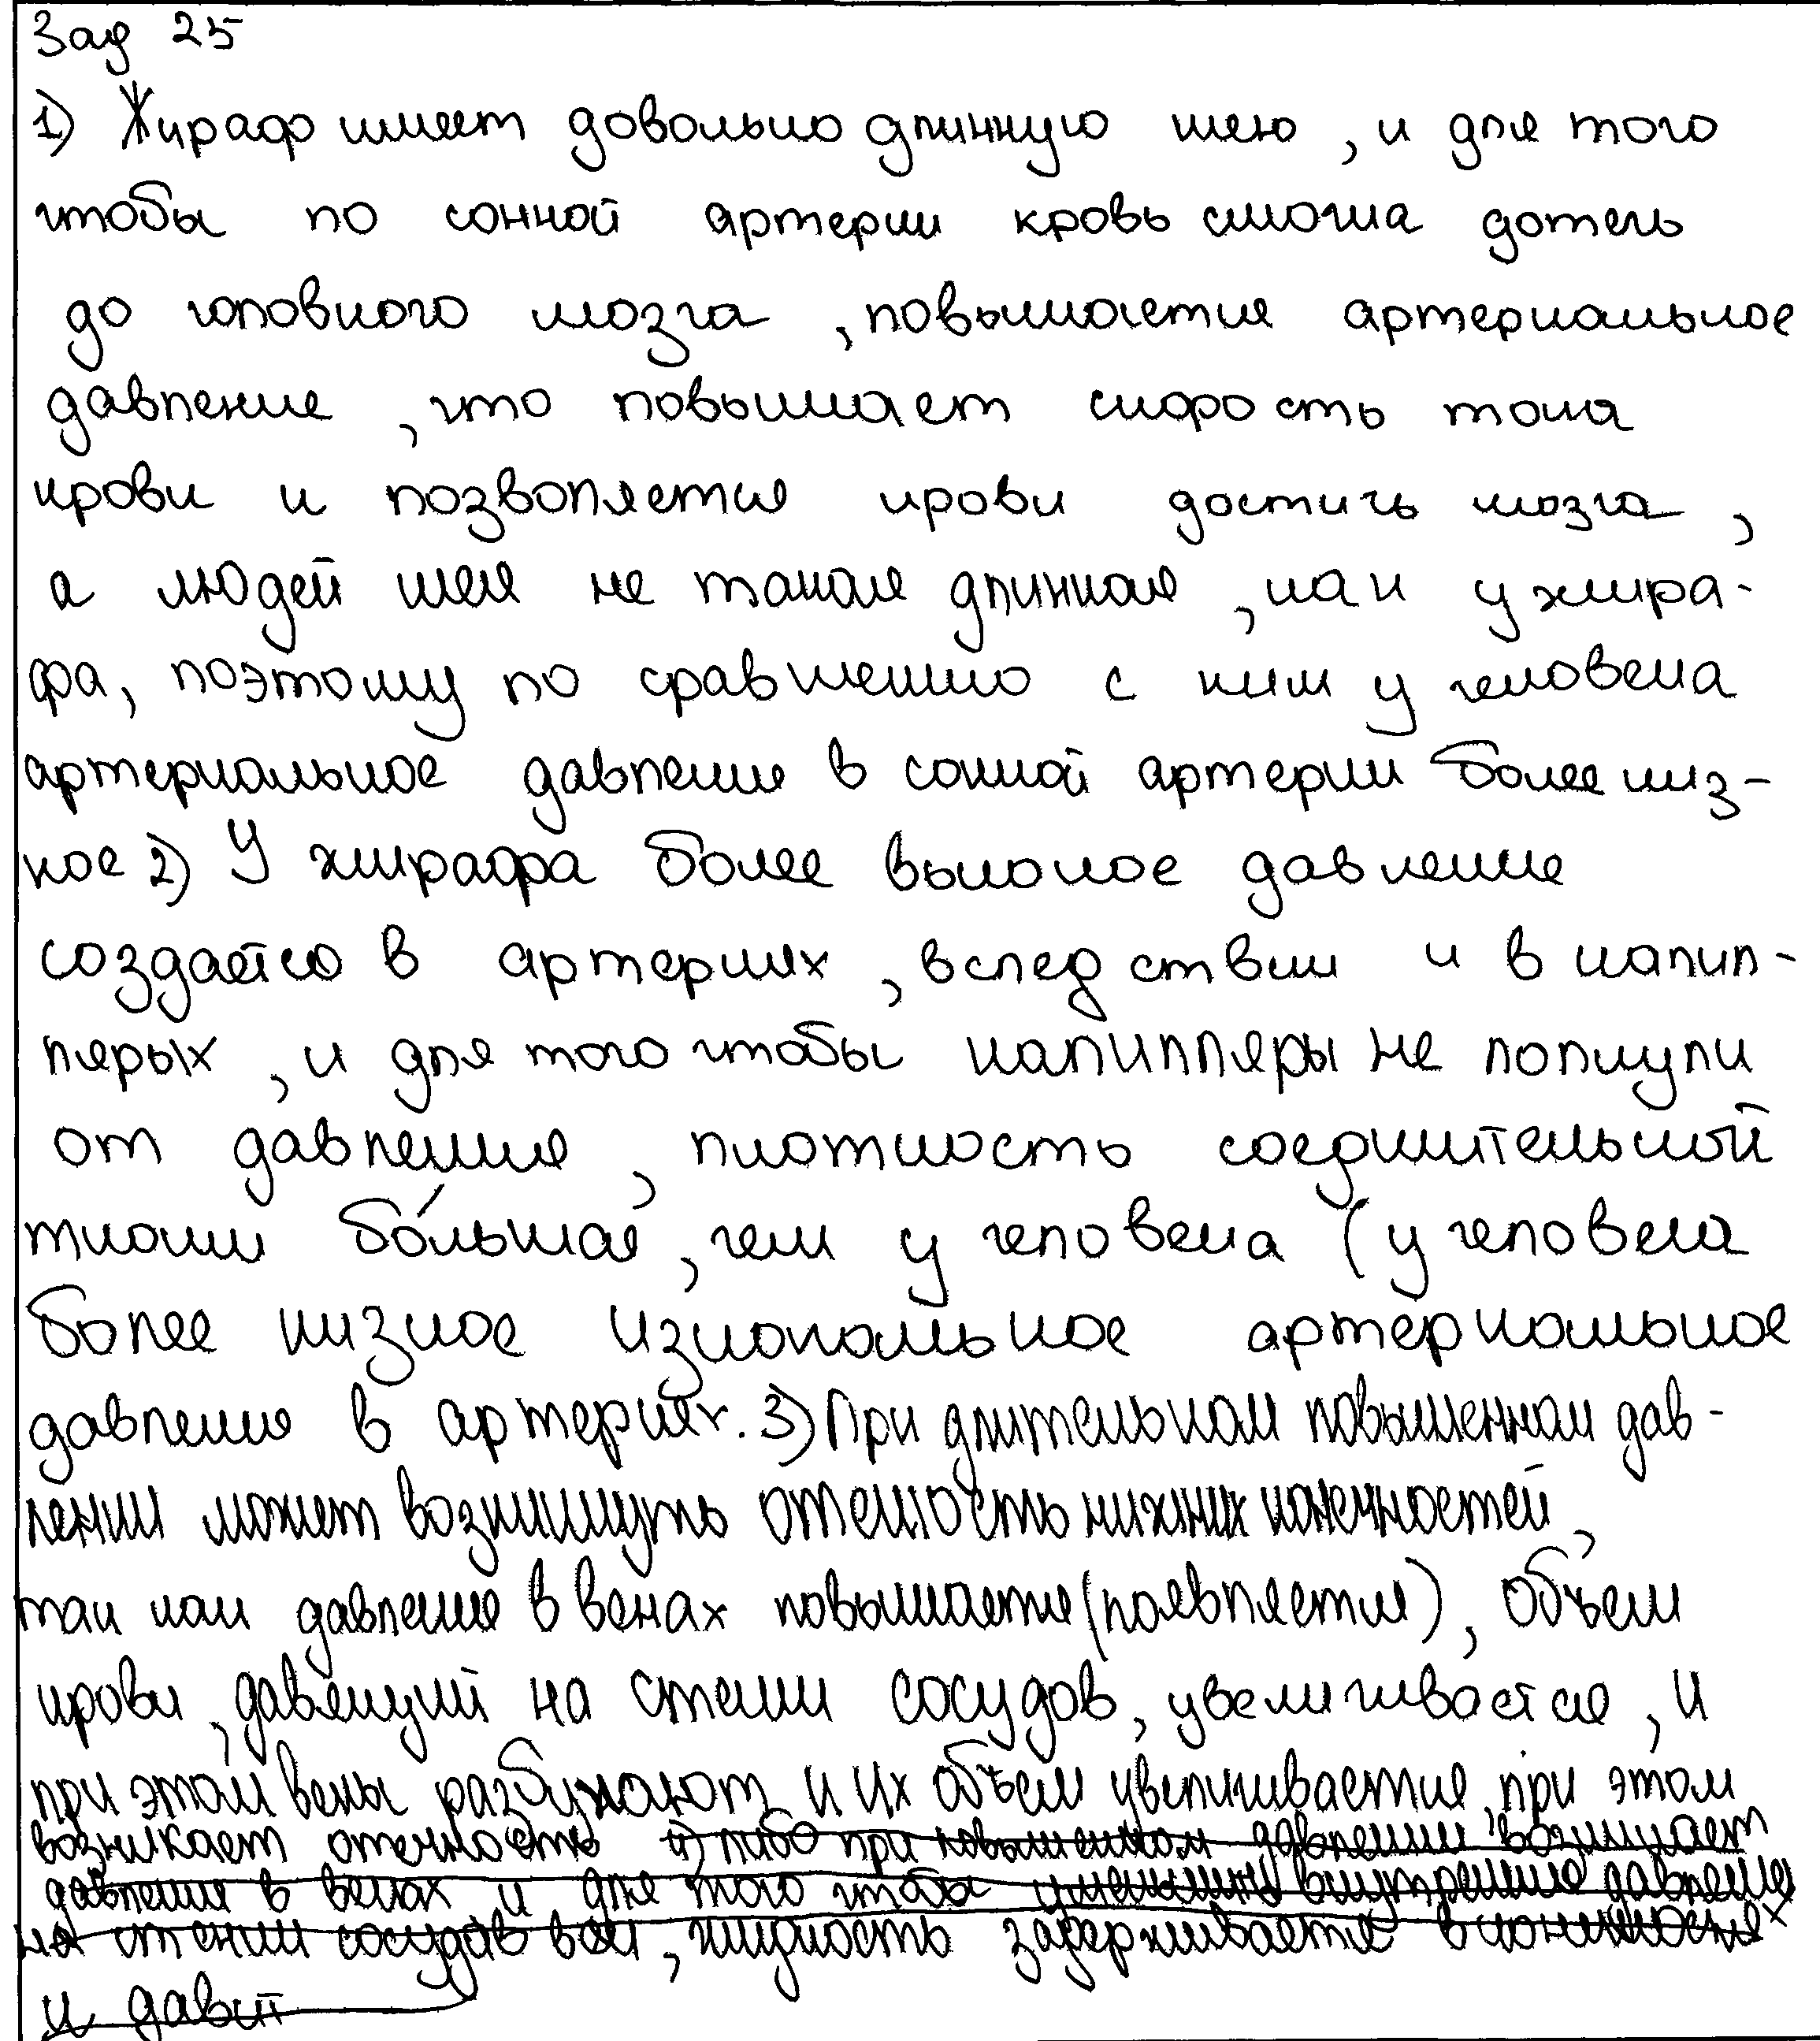 Зад 25
1) Жираф имеет довольно длинную шею, и для того
чтобы по сонной артерии кровь смогла дотечь
до головного мозга, повышается артериальное
давление, что повышает скорость тока
крови и позволяется крови достичь мозга,
а людей шея не такая длинная, как у жира-
фа, поэтому по сравнению с ним у человека
артериальное давление в сонной артерии более низ-
кое 2) У жирафа более высокое давление
создаётся в артериях, вследствии и в капил-
лярых, и для того чтобы капилляры не лопнули
от давления, плотность соединительной
ткани бо́льшая, чем у человека (у человека
более низкое изначальное артериальное
давление в артериях. 3) При длительном повышенном дав-
лении может возникнуть отечность нижних конечностей,
так как давление в венах повышается (появляется), объем
крови, давящий на стенки сосудов, увеличивается, и
при этом вены разбухают и их объем увеличивается, при этом
возникает отечность 4) либо при повышенном давлении возникает
давление в венах и для того чтобы уменьшить внутреннее давление
на стенки сосудов вен, жидкость задерживается в конечностях
и давит